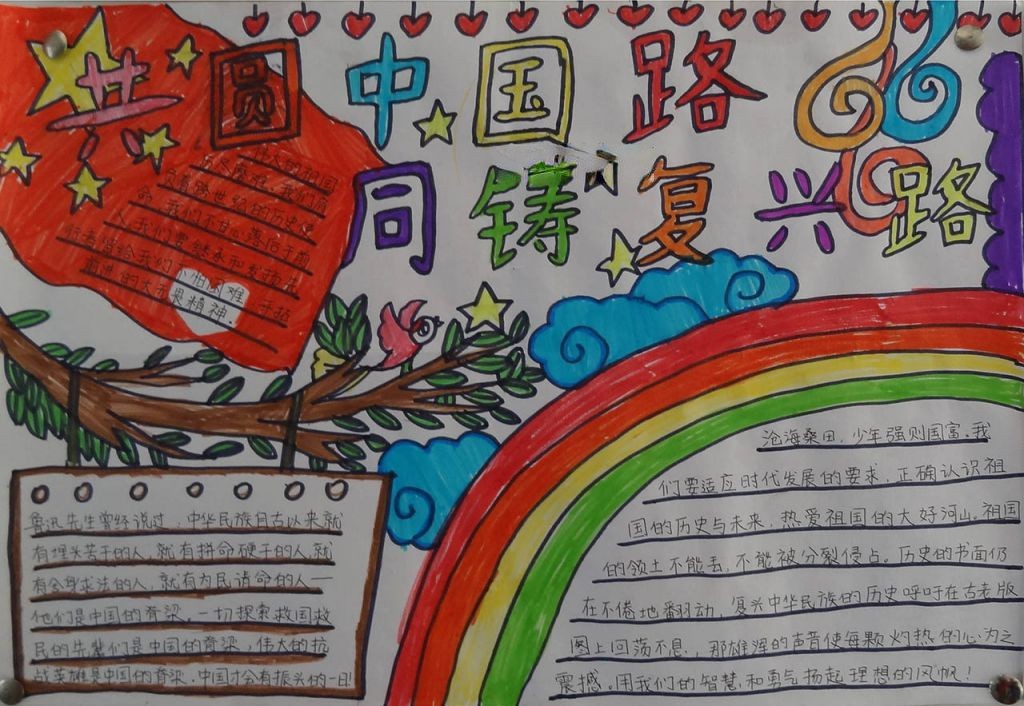 共圆中国路
同铸复兴路
伟大的祖国
负着跨世纪的历史使
命,我们不甘心落后于前
人,我们要继承和发扬先
行者留给我们
不怕困难,于拓
前进的大无畏精神.
鲁迅先生曾经说过,中华民族自古以来就
有埋头苦干的人,就有拼命硬干的人,就
有舍身求法的人,就有为民请命的人—
他们是中国的脊梁。一切探索救国救
民的先辈们是中国的脊梁,伟大的抗
战英雄是中国的脊梁.中国才会有振兴的一日!
沧海桑田,少年强则国富.我
们要适应时代发展的要求,正确认识祖
国的历史与未来,热爱祖国的大好河山。祖国
的领土不能丢,不能被分裂侵占。历史的书面仍
在不倦地翻动,复兴中华民族的历史呼吁在古老版
图上回荡不息,那雄浑的声音使每颗灼热的心为之
震撼。用我们的智慧和勇气扬起理想的风帆!